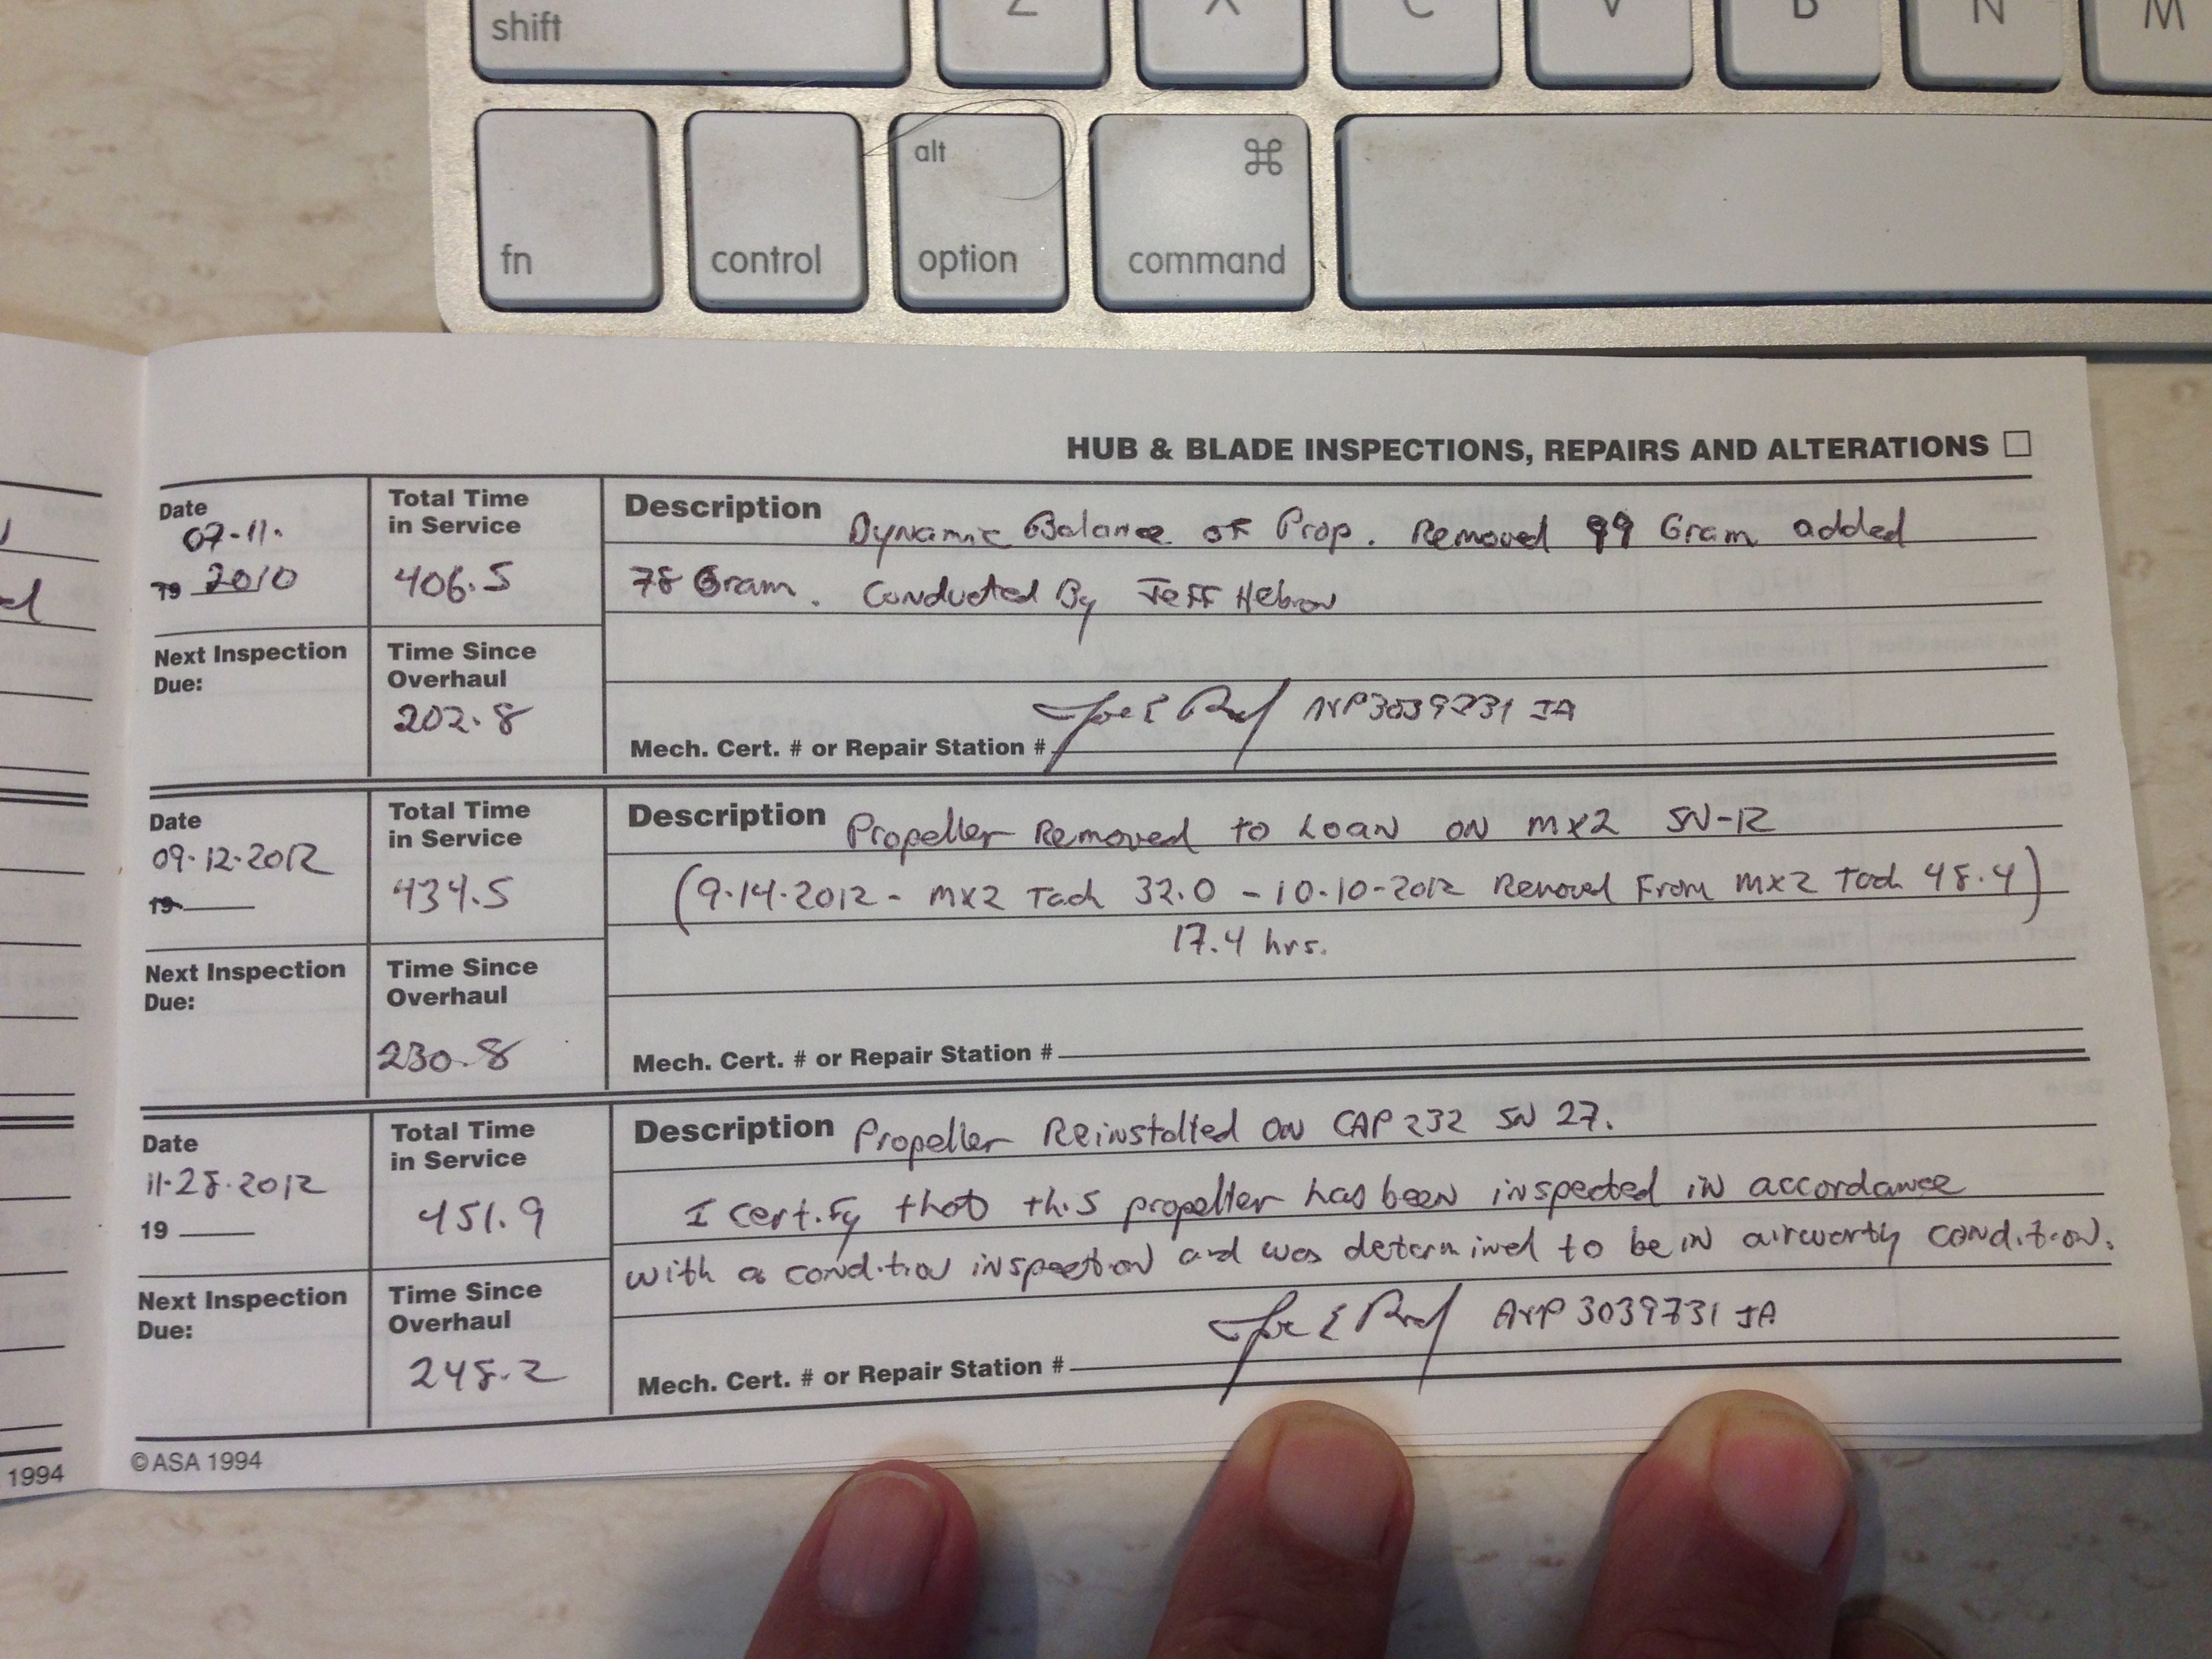 shift Z X C V B N M
fn control alt option ⌘ command
HUB & BLADE INSPECTIONS, REPAIRS AND ALTERATIONS
Date 07-11.
19 2010
Total Time in Service
406.5
Description Dynamic Balance of Prop. Removed 99 Gram added
78 Gram. Conducted By Jeff Hebron
Next Inspection Due:
Time Since Overhaul
202.8
Mech. Cert. # or Repair Station # A&P 3039731 IA
Date
09-12-2012
19
Total Time in Service
434.5
Description Propeller Removed to Loan on MX2 SN-12
(9-14-2012 - MX2 Tach 32.0 - 10-10-2012 Removal From MX2 Tach 48.4)
17.4 hrs.
Next Inspection Due:
Time Since Overhaul
230.8
Mech. Cert. # or Repair Station #
Date
11-28-2012
19
Total Time in Service
451.9
Description Propeller Reinstalled on CAP 232 SN 27.
I certify that this propeller has been inspected in accordance
with a condition inspection and was determined to be in airworthy condition.
Next Inspection Due:
Time Since Overhaul
248.2
Mech. Cert. # or Repair Station # A&P 3039731 IA
©ASA 1994
1994